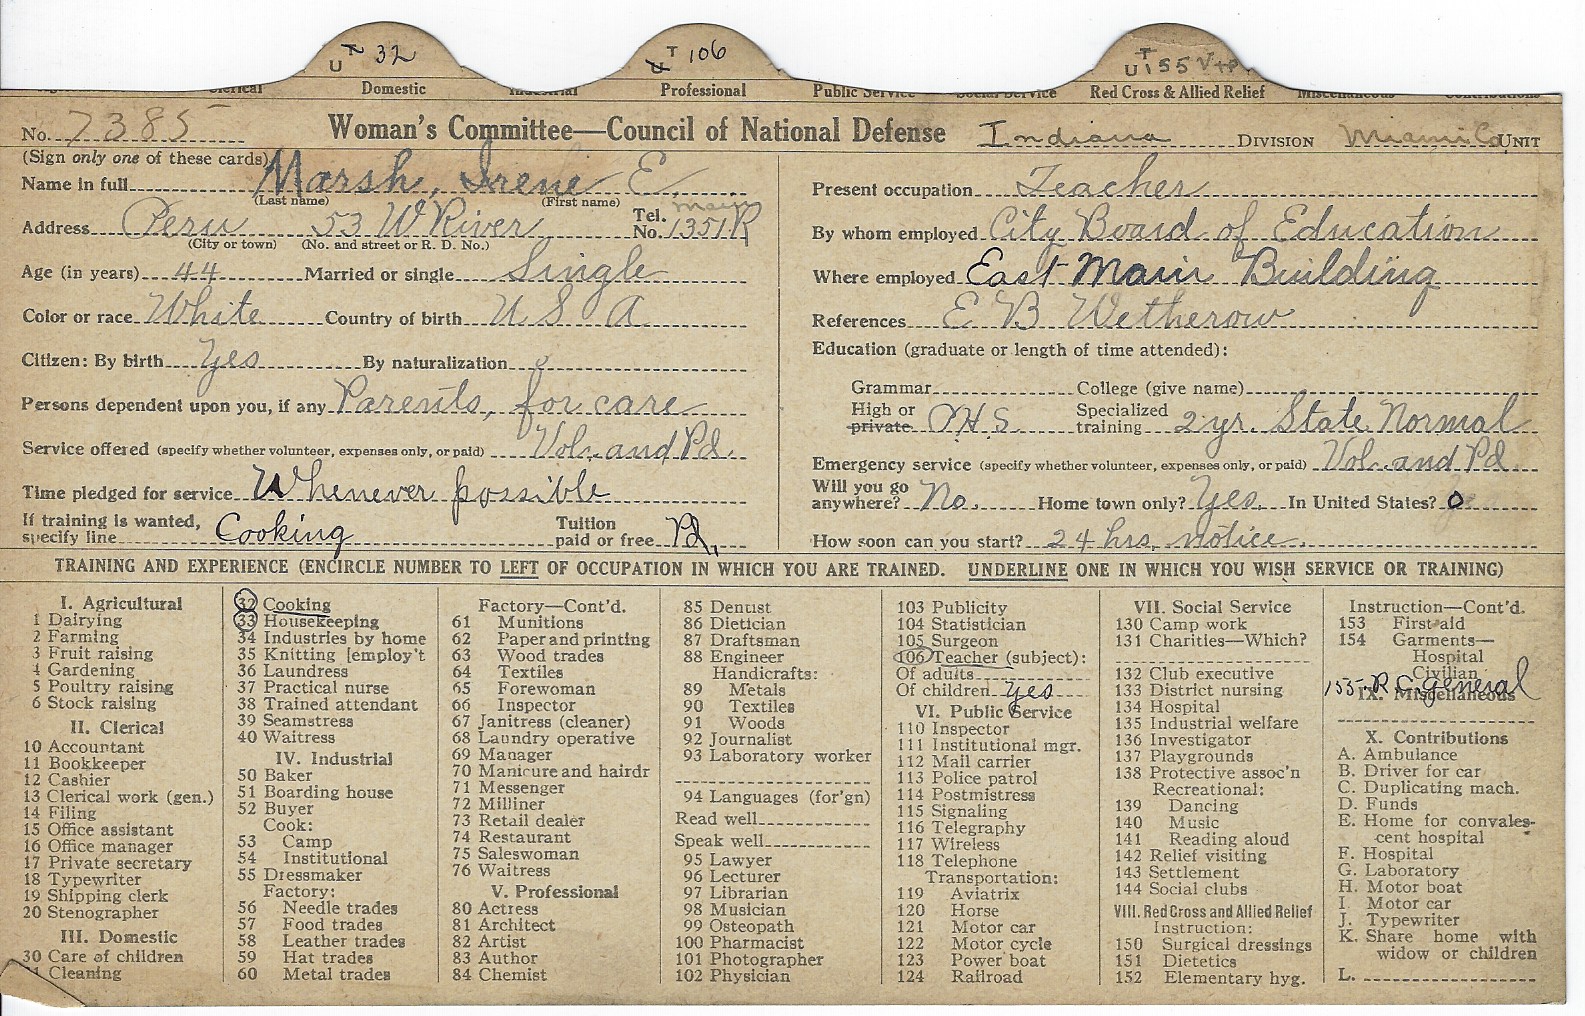 U T 32 T 106 U T 155 V
Clerical Domestic Industrial Professional Public Service Social Service Red Cross & Allied Relief Miscellaneous Contributions
No. 7385 Woman's Committee—Council of National Defense Indiana DIVISION Miami Co. UNIT
(Sign only one of these cards)
Name in full Marsh, Irene E.
(Last name) (First name)
Address Peru 53 W River Tel. No. Main 1351R
(City or town) (No. and street or R. D. No.)
Age (in years) 44 Married or single Single
Color or race White Country of birth U S A
Citizen: By birth Yes By naturalization o
Persons dependent upon you, if any Parents, for care
Service offered (specify whether volunteer, expenses only, or paid) Vol. and Pd.
Time pledged for service Whenever possible
If training is wanted, specify line Cooking Tuition paid or free Pd.
Present occupation Teacher
By whom employed City Board of Education
Where employed East Main Building
References E B Wetherow
Education (graduate or length of time attended):
Grammar College (give name)
High or private H.S. Specialized training 2 yr. State Normal
Emergency service (specify whether volunteer, expenses only, or paid) Vol. and Pd
Will you go anywhere? No. Home town only? Yes. In United States? o
How soon can you start? 24 hrs. notice.
TRAINING AND EXPERIENCE (ENCIRCLE NUMBER TO LEFT OF OCCUPATION IN WHICH YOU ARE TRAINED. UNDERLINE ONE IN WHICH YOU WISH SERVICE OR TRAINING)
I. Agricultural
1 Dairying
2 Farming
3 Fruit raising
4 Gardening
5 Poultry raising
6 Stock raising
II. Clerical
10 Accountant
11 Bookkeeper
12 Cashier
13 Clerical work (gen.)
14 Filing
15 Office assistant
16 Office manager
17 Private secretary
18 Typewriter
19 Shipping clerk
20 Stenographer
III. Domestic
30 Care of children
Cleaning
32 Cooking
33 Housekeeping
34 Industries by home
35 Knitting [employ't
36 Laundress
37 Practical nurse
38 Trained attendant
39 Seamstress
40 Waitress
IV. Industrial
50 Baker
51 Boarding house
52 Buyer
Cook:
53 Camp
54 Institutional
55 Dressmaker
Factory:
56 Needle trades
57 Food trades
58 Leather trades
59 Hat trades
60 Metal trades
Factory—Cont'd.
61 Munitions
62 Paper and printing
63 Wood trades
64 Textiles
65 Forewoman
66 Inspector
67 Janitress (cleaner)
68 Laundry operative
69 Manager
70 Manicure and hairdr
71 Messenger
72 Milliner
73 Retail dealer
74 Restaurant
75 Saleswoman
76 Waitress
V. Professional
80 Actress
81 Architect
82 Artist
83 Author
84 Chemist
85 Dentist
86 Dietician
87 Draftsman
88 Engineer
Handicrafts:
89 Metals
90 Textiles
91 Woods
92 Journalist
93 Laboratory worker
94 Languages (for'gn)
Read well
Speak well
95 Lawyer
96 Lecturer
97 Librarian
98 Musician
99 Osteopath
100 Pharmacist
101 Photographer
102 Physician
103 Publicity
104 Statistician
105 Surgeon
106 Teacher (subject):
Of adults
Of children yes
VI. Public Service
110 Inspector
111 Institutional mgr.
112 Mail carrier
113 Police patrol
114 Postmistress
115 Signaling
116 Telegraphy
117 Wireless
118 Telephone
Transportation:
119 Aviatrix
120 Horse
121 Motor car
122 Motor cycle
123 Power boat
124 Railroad
VII. Social Service
130 Camp work
131 Charities—Which?
132 Club executive
133 District nursing
134 Hospital
135 Industrial welfare
136 Investigator
137 Playgrounds
138 Protective assoc'n
Recreational:
139 Dancing
140 Music
141 Reading aloud
142 Relief visiting
143 Settlement
144 Social clubs
VIII. Red Cross and Allied Relief
Instruction:
150 Surgical dressings
151 Dietetics
152 Elementary hyg.
Instruction—Cont'd.
153 First aid
154 Garments—
Hospital
Civilian
155 R C General
IX. Miscellaneous
X. Contributions
A. Ambulance
B. Driver for car
C. Duplicating mach.
D. Funds
E. Home for convales-
cent hospital
F. Hospital
G. Laboratory
H. Motor boat
I Motor car
J. Typewriter
K. Share home with
widow or children
L.